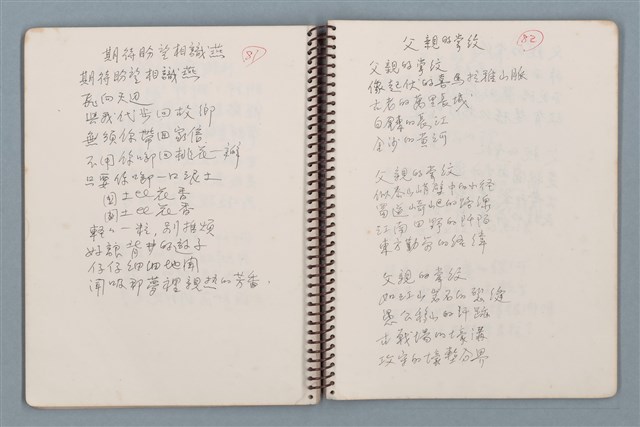 期待盼望相識燕
81
期待盼望相識燕
飛向天邊
與我代步回故鄉
無須你帶回家信
不用你啣回桃花一瓣
只要你啣一口泥土
國土比花香
國土比花香
輕輕一粒,別推煩
好讓背井的遊子
仔仔細細地聞
聞吸那夢裡親切的芳香.
父親的掌紋
82
父親的掌紋
像起伏的喜馬拉雅山脈
古老的萬里長城
白鍊的長江
金沙的黃河
父親的掌紋
似泰山峭壁中的小徑
蜀道崎嶇的路線
江南田野的阡陌
東方勤勞的經緯
父親的掌紋
如紅山岩石的裂縫
愚公移山的評跡
古戰場的壕溝
攻守的壕塹分界